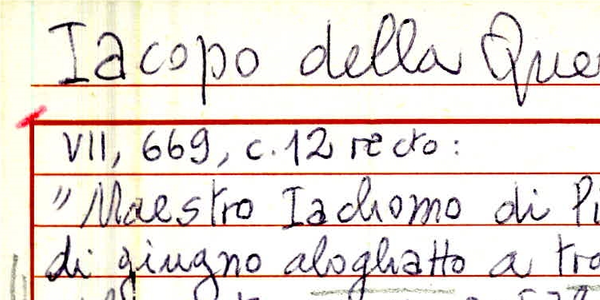 Iacopo della
VII, 669, c. 12 recto:
"Maestro Iachomo di
di giugno aloghatto a